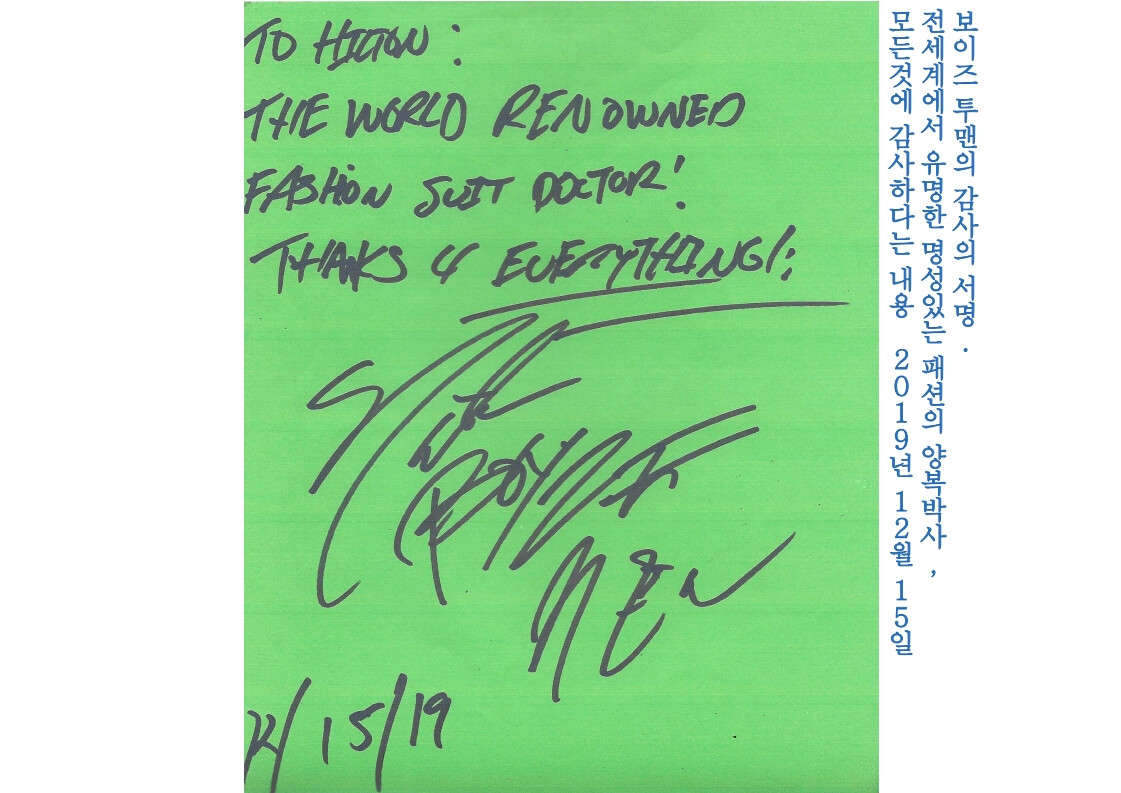 TO HILTON:
THE WORLD RENOWNED
FASHION SUIT DOCTOR!
THANKS 4 EVERYTHING!:
BOYZ II
MEN
12/15/19
보이즈 투맨의 감사의 서명.
전세계에서 유명한 명성있는 패션의 양복박사,
모든것에 감사하다는 내용 2019년 12월 15일